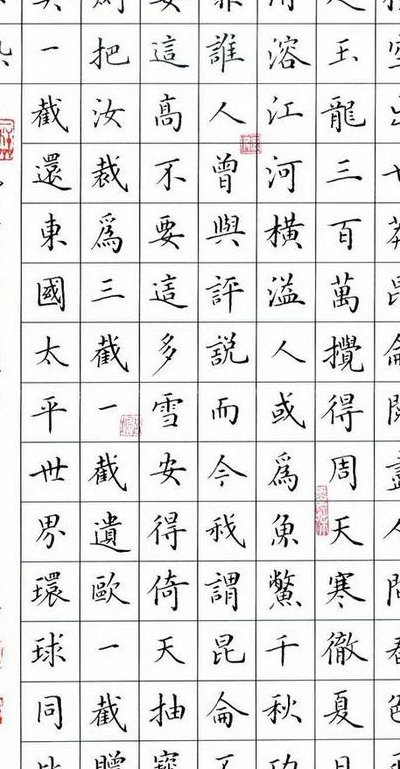 空出世莽昆侖閱盡人間春色
玉龍三百萬攪得周天寒徹夏
溶江河橫溢人或爲魚鱉千秋
誰人曾與評説而今我謂昆侖
這高不要這多雪安得倚天抽
把汝裁爲三截一截遺歐一截
一截還東國太平世界環球同